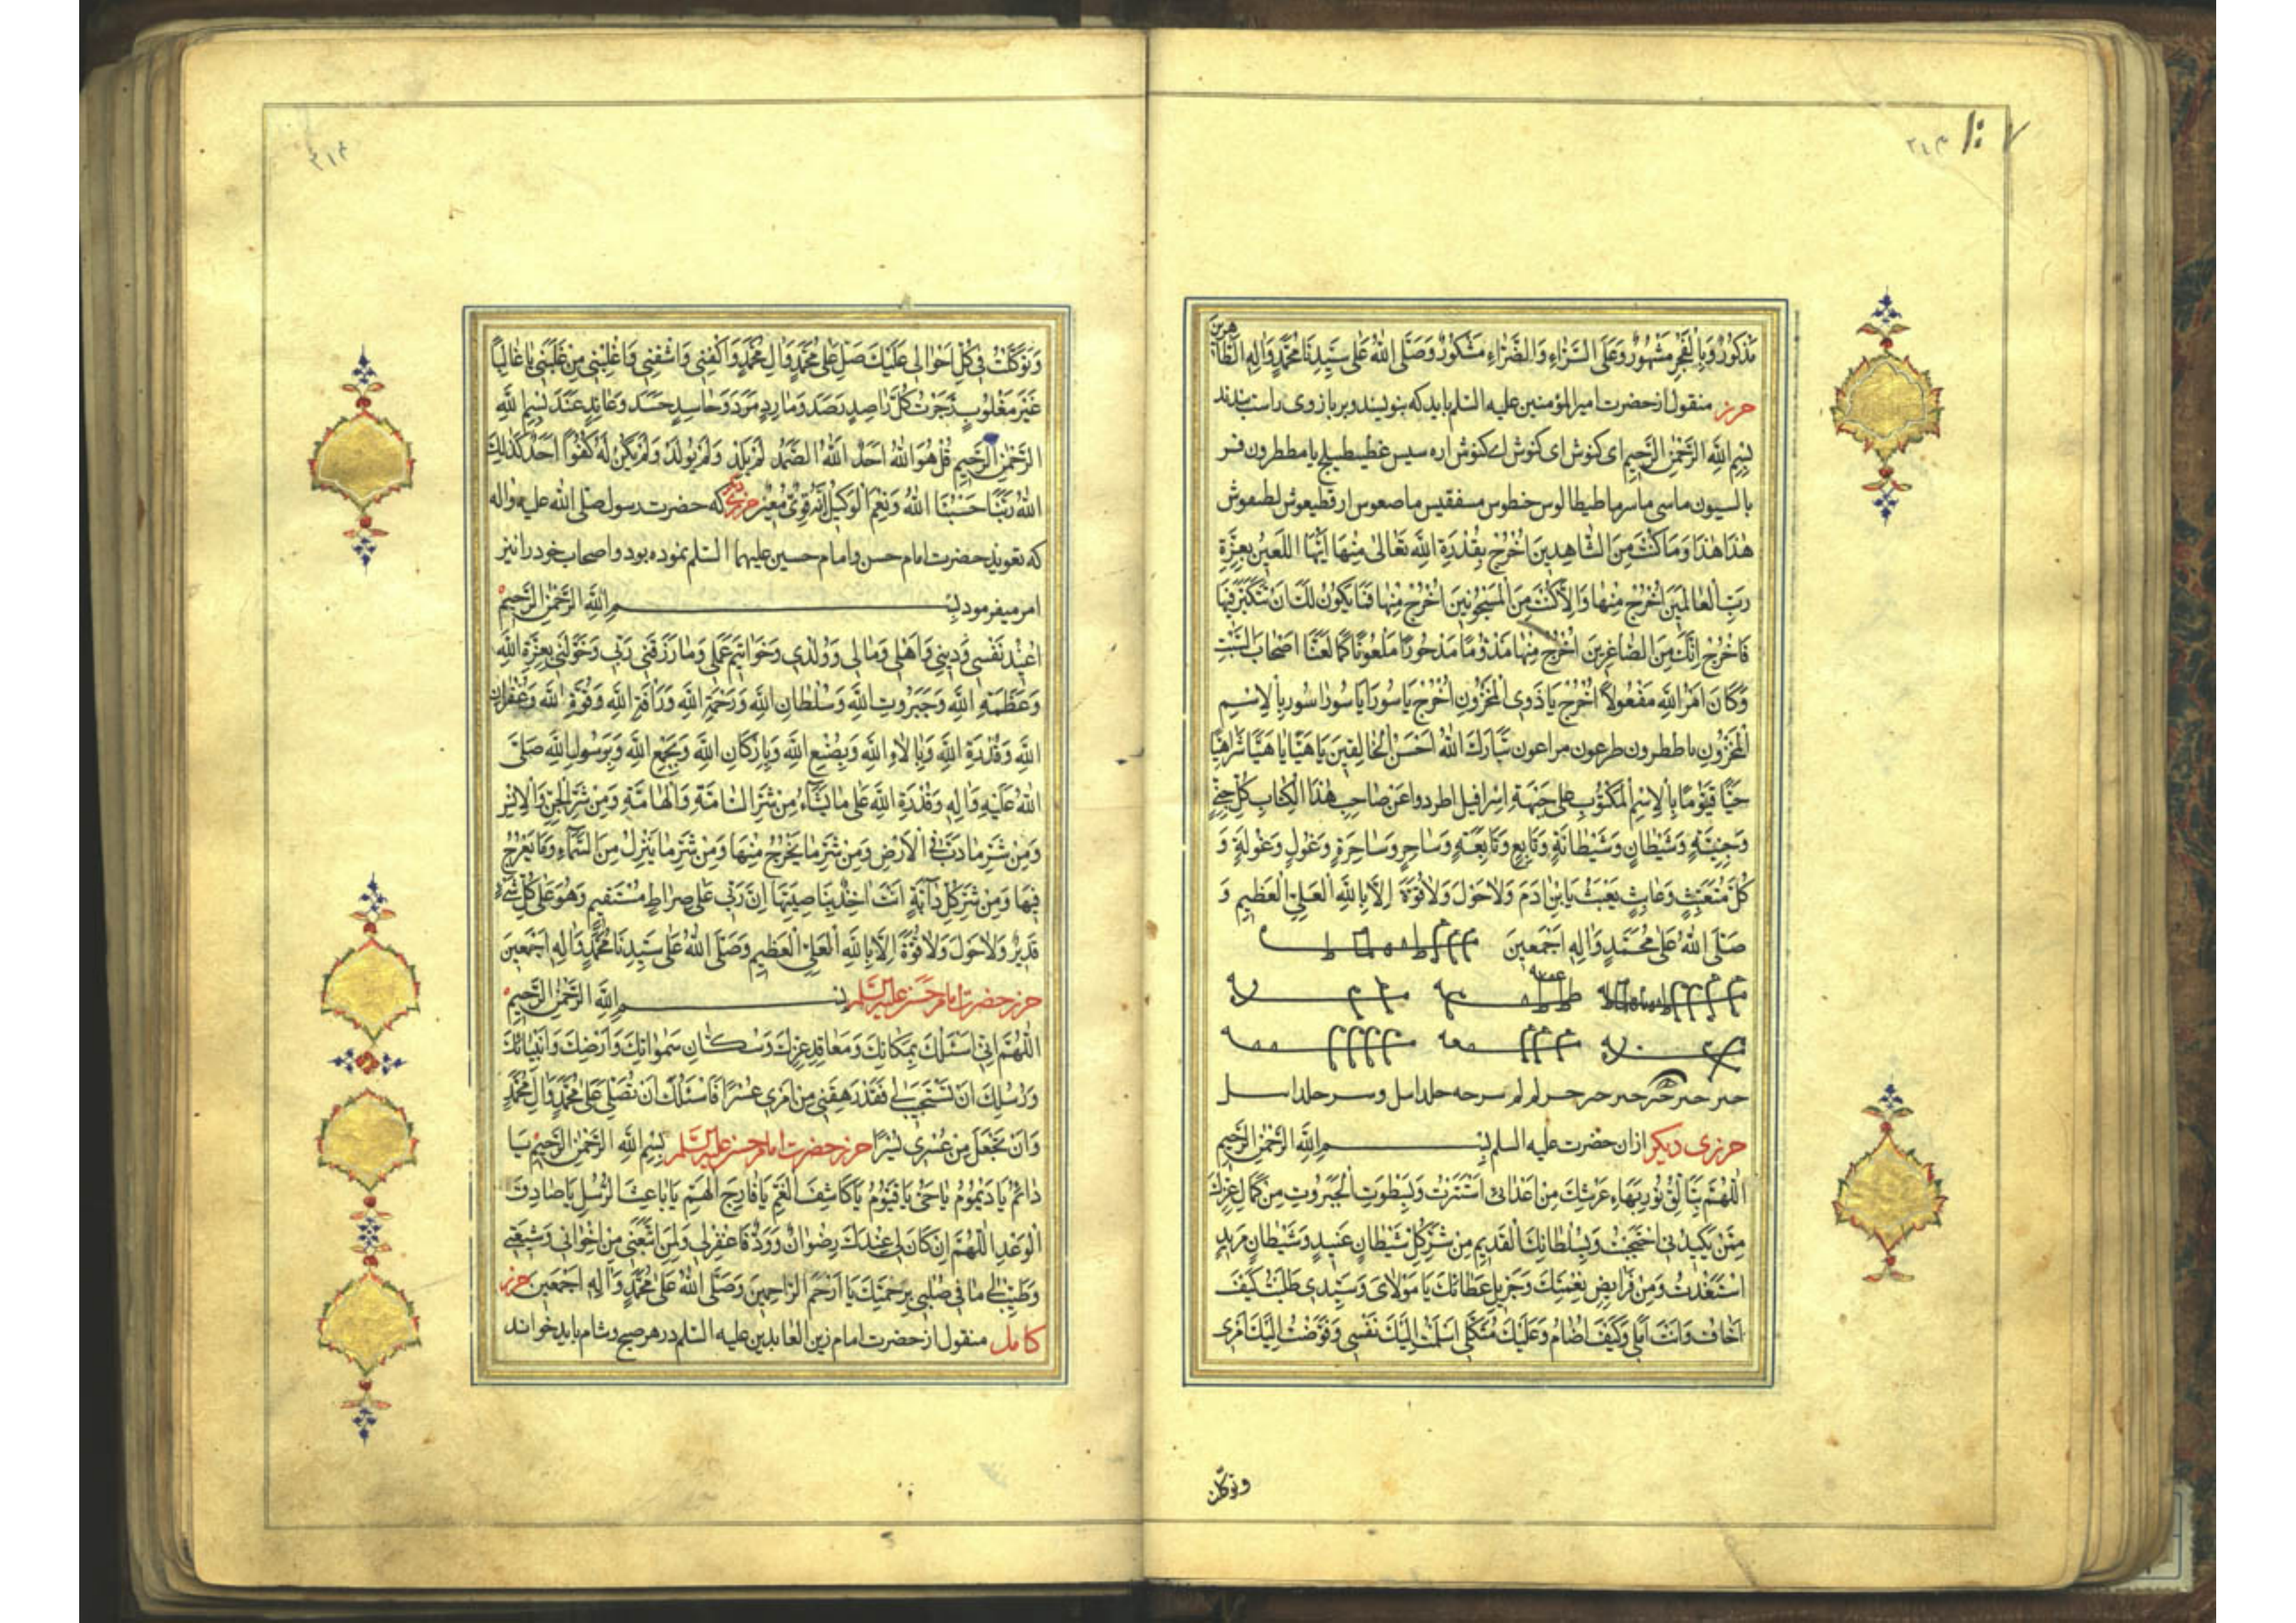 مَذْكُورٌ وَبِالْفَجْرِ مَشْهُورٌ وَعَلَى السَّرَّاءِ وَالضَّرَّاءِ مَشْكُورٌ وَصَلَّى اللهُ عَلى سَيِّدِنَا مُحَمَّدٍ وَالِهِ الطَّاهِرِينَ
حرز منقول از حضرت امیرالمؤمنین علیه السلم باید که بنویسند و بر بازوی راست بندند
بِسْمِ اللهِ الرَّحْمٰنِ الرَّحِيمِ ای کنوش ای کنوش اره سیس عطیطسطیلح یا مططرون قر
بالسیون ماسی ماسرما طیطالوس خنطوس مسفقیس ماصعوس ارقطیعوش لطیعوش
هٰذَا هٰذَا وَمَا كُنْتَ مِنَ الشَّاهِدِينَ اُخْرُجْ بِقُدْرَةِ اللهِ تَعَالىٰ مِنْهَا اَيُّهَا اللَّعِينُ بِعِزَّةِ
رَبِّ الْعَالَمِينَ اُخْرُجْ مِنْهَا وَاِلَّا كُنْتَ مِنَ الْمَسْجُونِينَ اُخْرُجْ مِنْهَا فَمَا يَكُونُ لَكَ اَنْ تَتَكَبَّرَ فِيهَا
فَاخْرُجْ اِنَّكَ مِنَ الصَّاغِرِينَ اُخْرُجْ مِنْهَا مَذْؤُمًا مَدْحُورًا مَلْعُونًا كَمَا لَعَنَّا اَصْحَابَ السَّبْتِ
وَكَانَ اَمْرُ اللهِ مَفْعُولًا اُخْرُجْ يَا ذَوِى الْمَخْزُونِ اُخْرُجْ يَا سُورَا يَا سُورَا سُور بِالْاِسْمِ
الْمَخْزُونِ یا ططرون طرعون مراعون تَبَارَكَ اللهُ اَحْسَنُ الْخَالِقِينَ يَا هَيَّا يَا هَيَّا شَرَاهِيَّا
حَيًّا قَيُّومًا بِالْاِسْمِ الْمَكْتُوبِ عَلى جَبْهَةِ اِسْرَافِيلَ اطردوا عَنْ صَاحِبِ هٰذَا الْكِتَابِ كُلَّ جِنِّيٍّ
وَجِنِّيَّةٍ وَشَيْطَانٍ وَشَيْطَانَةٍ وَتَابِعٍ وَتَابِعَةٍ وَسَاحِرٍ وَسَاحِرَةٍ وَغُولٍ وَغُولَةٍ وَ
كُلَّ مُتَعَبِّثٍ وَعَابِثٍ يَعْبَثُ بِابْنِ اٰدَمَ وَلَا حَوْلَ وَلَا قُوَّةَ اِلَّا بِاللهِ الْعَلِيِّ الْعَظِيمِ وَ
صَلَّى اللهُ عَلى مُحَمَّدٍ وَالِهِ اَجْمَعِينَ
حرزی دیکر ازان حضرت علیه السلم بِسْمِ اللهِ الرَّحْمٰنِ الرَّحِيمِ
اَللّٰهُمَّ بِتَأَلُّقِ نُورِ بَهَاءِ عَرْشِكَ مِنْ اَعْدَائِي اسْتَتَرْتُ وَبِسَطْوَتِ الْجَبَرُوتِ مِنْ كَمَالِ عِزِّكَ
مِمَّنْ يَكِيدُنِي احْتَجَبْتُ وَبِسُلْطَانِكَ الْقَدِيمِ مِنْ شَرِّ كُلِّ شَيْطَانٍ عَنِيدٍ وَشَيْطَانٍ مَرِيدٍ
اسْتَعَذْتُ وَمِنْ فَرَايِضِ نِعْمَتِكَ وَجَزِيلِ عَطَائِكَ يَا مَوْلَايَ وَسَيِّدِي طَلَبْتُ كَيْفَ
اَخَافُ وَاَنْتَ اَمَلِي وَكَيْفَ اُضَامُ وَعَلَيْكَ مُتَّكَلِي اَسْلَمْتُ اِلَيْكَ نَفْسِي وَفَوَّضْتُ اِلَيْكَ اَمْرِي
وتوکلت
وَتَوَكَّلْتُ فِي كُلِّ اَحْوَالِي عَلَيْكَ صَلِّ عَلى مُحَمَّدٍ وَالِ مُحَمَّدٍ وَاكْفِنِي وَاشْفِنِي وَاغْلِبْنِي مِنْ غَلَبَنِي يَا غَالِبًا
غَيْرَ مَغْلُوبٍ زَجَرْتُ كُلَّ رَاصِدٍ رَصَدَ وَمَارِدٍ مَرَدَ وَحَاسِدٍ حَسَدَ وَعَانِدٍ عَنَدَ بِسْمِ اللهِ
الرَّحْمٰنِ الرَّحِيمِ قُلْ هُوَ اللهُ اَحَدٌ اَللهُ الصَّمَدُ لَمْ يَلِدْ وَلَمْ يُولَدْ وَلَمْ يَكُنْ لَهُ كُفُوًا اَحَدٌ كَذٰلِكَ
اللهُ رَبُّنَا حَسْبُنَا اللهُ وَنِعْمَ الْوَكِيلُ اِنَّهُ قَوِيٌّ مُعِينٌ حرزی دیکر که حضرت رسول صلی الله علیه واله
که تعویذ حضرت امام حسن وامام حسین علیهما السلم نموده بود واصحاب خود را نیز
امر میفرمود بِسْمِ اللهِ الرَّحْمٰنِ الرَّحِيمِ
اُعِيذُ نَفْسِي وَدِينِي وَاَهْلِي وَمَالِي وَوُلْدِي وَخَوَاتِيمَ عَمَلِي وَمَا رَزَقَنِي رَبِّي وَخَوَّلَنِي بِعِزَّةِ اللهِ
وَعَظَمَةِ اللهِ وَجَبَرُوتِ اللهِ وَسُلْطَانِ اللهِ وَرَحْمَةِ اللهِ وَرَأْفَةِ اللهِ وَقُوَّةِ اللهِ وَغُفْرَانِ
اللهِ وَقُدْرَةِ اللهِ وَبِالَاءِ اللهِ وَبِصُنْعِ اللهِ وَبِاَرْكَانِ اللهِ وَبِجَمْعِ اللهِ وَبِرَسُولِ اللهِ صَلَّى
اللهُ عَلَيْهِ وَالِهِ وَقُدْرَةِ اللهِ عَلى مَا يَشَاءُ مِنْ شَرِّ السَّامَّةِ وَالْهَامَّةِ وَمِنْ شَرِّ الْجِنِّ وَالْاِنْسِ
وَمِنْ شَرِّ مَا دَبَّ فِي الْاَرْضِ وَمِنْ شَرِّ مَا يَخْرُجُ مِنْهَا وَمِنْ شَرِّ مَا يَنْزِلُ مِنَ السَّمَاءِ وَمَا يَعْرُجُ
فِيهَا وَمِنْ شَرِّ كُلِّ دَابَّةٍ اَنْتَ اٰخِذٌ بِنَاصِيَتِهَا اِنَّ رَبِّي عَلى صِرَاطٍ مُسْتَقِيمٍ وَهُوَ عَلى كُلِّ شَيْءٍ
قَدِيرٌ وَلَا حَوْلَ وَلَا قُوَّةَ اِلَّا بِاللهِ الْعَلِيِّ الْعَظِيمِ وَصَلَّى اللهُ عَلى سَيِّدِنَا مُحَمَّدٍ وَالِهِ اَجْمَعِينَ
حرز حضرت امام حسن علیه السلم بِسْمِ اللهِ الرَّحْمٰنِ الرَّحِيمِ
اَللّٰهُمَّ اِنِّي اَسْئَلُكَ بِمَكَانِكَ وَمَعَاقِدِ عِزِّكَ وَسُكَّانِ سَمٰوَاتِكَ وَاَرْضِكَ وَاَنْبِيَائِكَ
وَرُسُلِكَ اَنْ تَسْتَجِيبَ لِي فَقَدْ رَهِقَنِي مِنْ اَمْرِي عُسْرًا فَاَسْئَلُكَ اَنْ تُصَلِّيَ عَلى مُحَمَّدٍ وَالِ مُحَمَّدٍ
وَاَنْ تَجْعَلَ مِنْ عُسْرِي يُسْرًا حرز حضرت امام حسین علیه السلم بِسْمِ اللهِ الرَّحْمٰنِ الرَّحِيمِ يَا
دَائِمُ يَا دَيْمُومُ يَا حَيُّ يَا قَيُّومُ يَا كَاشِفَ الْغَمِّ يَا فَارِجَ الْهَمِّ يَا بَاعِثَ الرُّسُلِ يَا صَادِقَ
الْوَعْدِ اَللّٰهُمَّ اِنْ كَانَ لِي عِنْدَكَ رِضْوَانٌ وَوُدٌّ فَاغْفِرْ لِي وَلِمَنِ اتَّبَعَنِي مِنْ اِخْوَانِي وَشِيعَتِي
وَطَيِّبْ لِي مَا فِي صُلْبِي بِرَحْمَتِكَ يَا اَرْحَمَ الرَّاحِمِينَ وَصَلَّى اللهُ عَلى مُحَمَّدٍ وَالِهِ اَجْمَعِينَ حرز
کامل منقول از حضرت امام زین العابدین علیه السلم در هر صبح و شام باید خواند